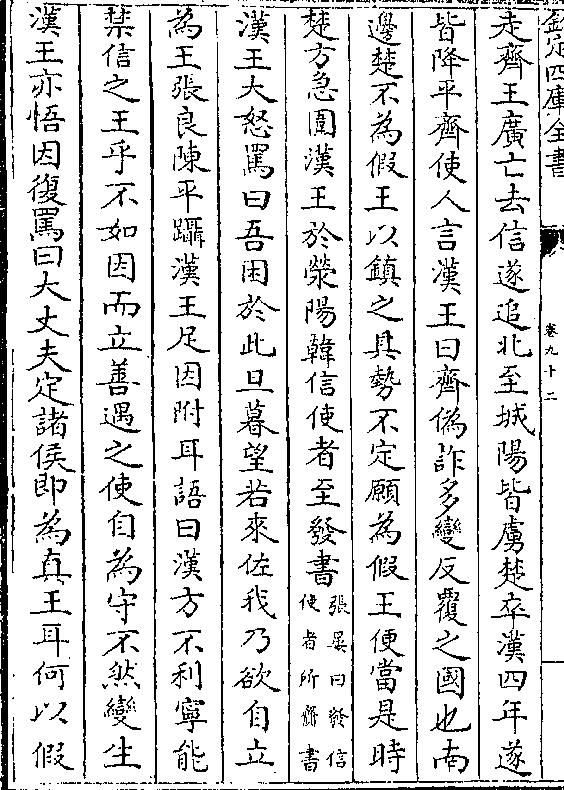 欽定四庫全書
卷九十二
走齊王廣亡去信遂追北至城陽皆虜楚卒漢四年遂
皆降平齊使人言漢王曰齊偽詐多變反覆之國也南
邊楚不為假王以鎮之其勢不定願為假王便當是時
楚方急圍漢王於滎陽韓信使者至發書張晏曰發信使者所齎書
漢王大怒罵曰吾困於此旦暮望若來佐我乃欲自立
為王張良陳平躡漢王足因附耳語曰漢方不利寧能
禁信之王乎不如因而立善遇之使自為守不然變生
漢王亦悟因復罵曰大丈夫定諸侯即為真王耳何以假